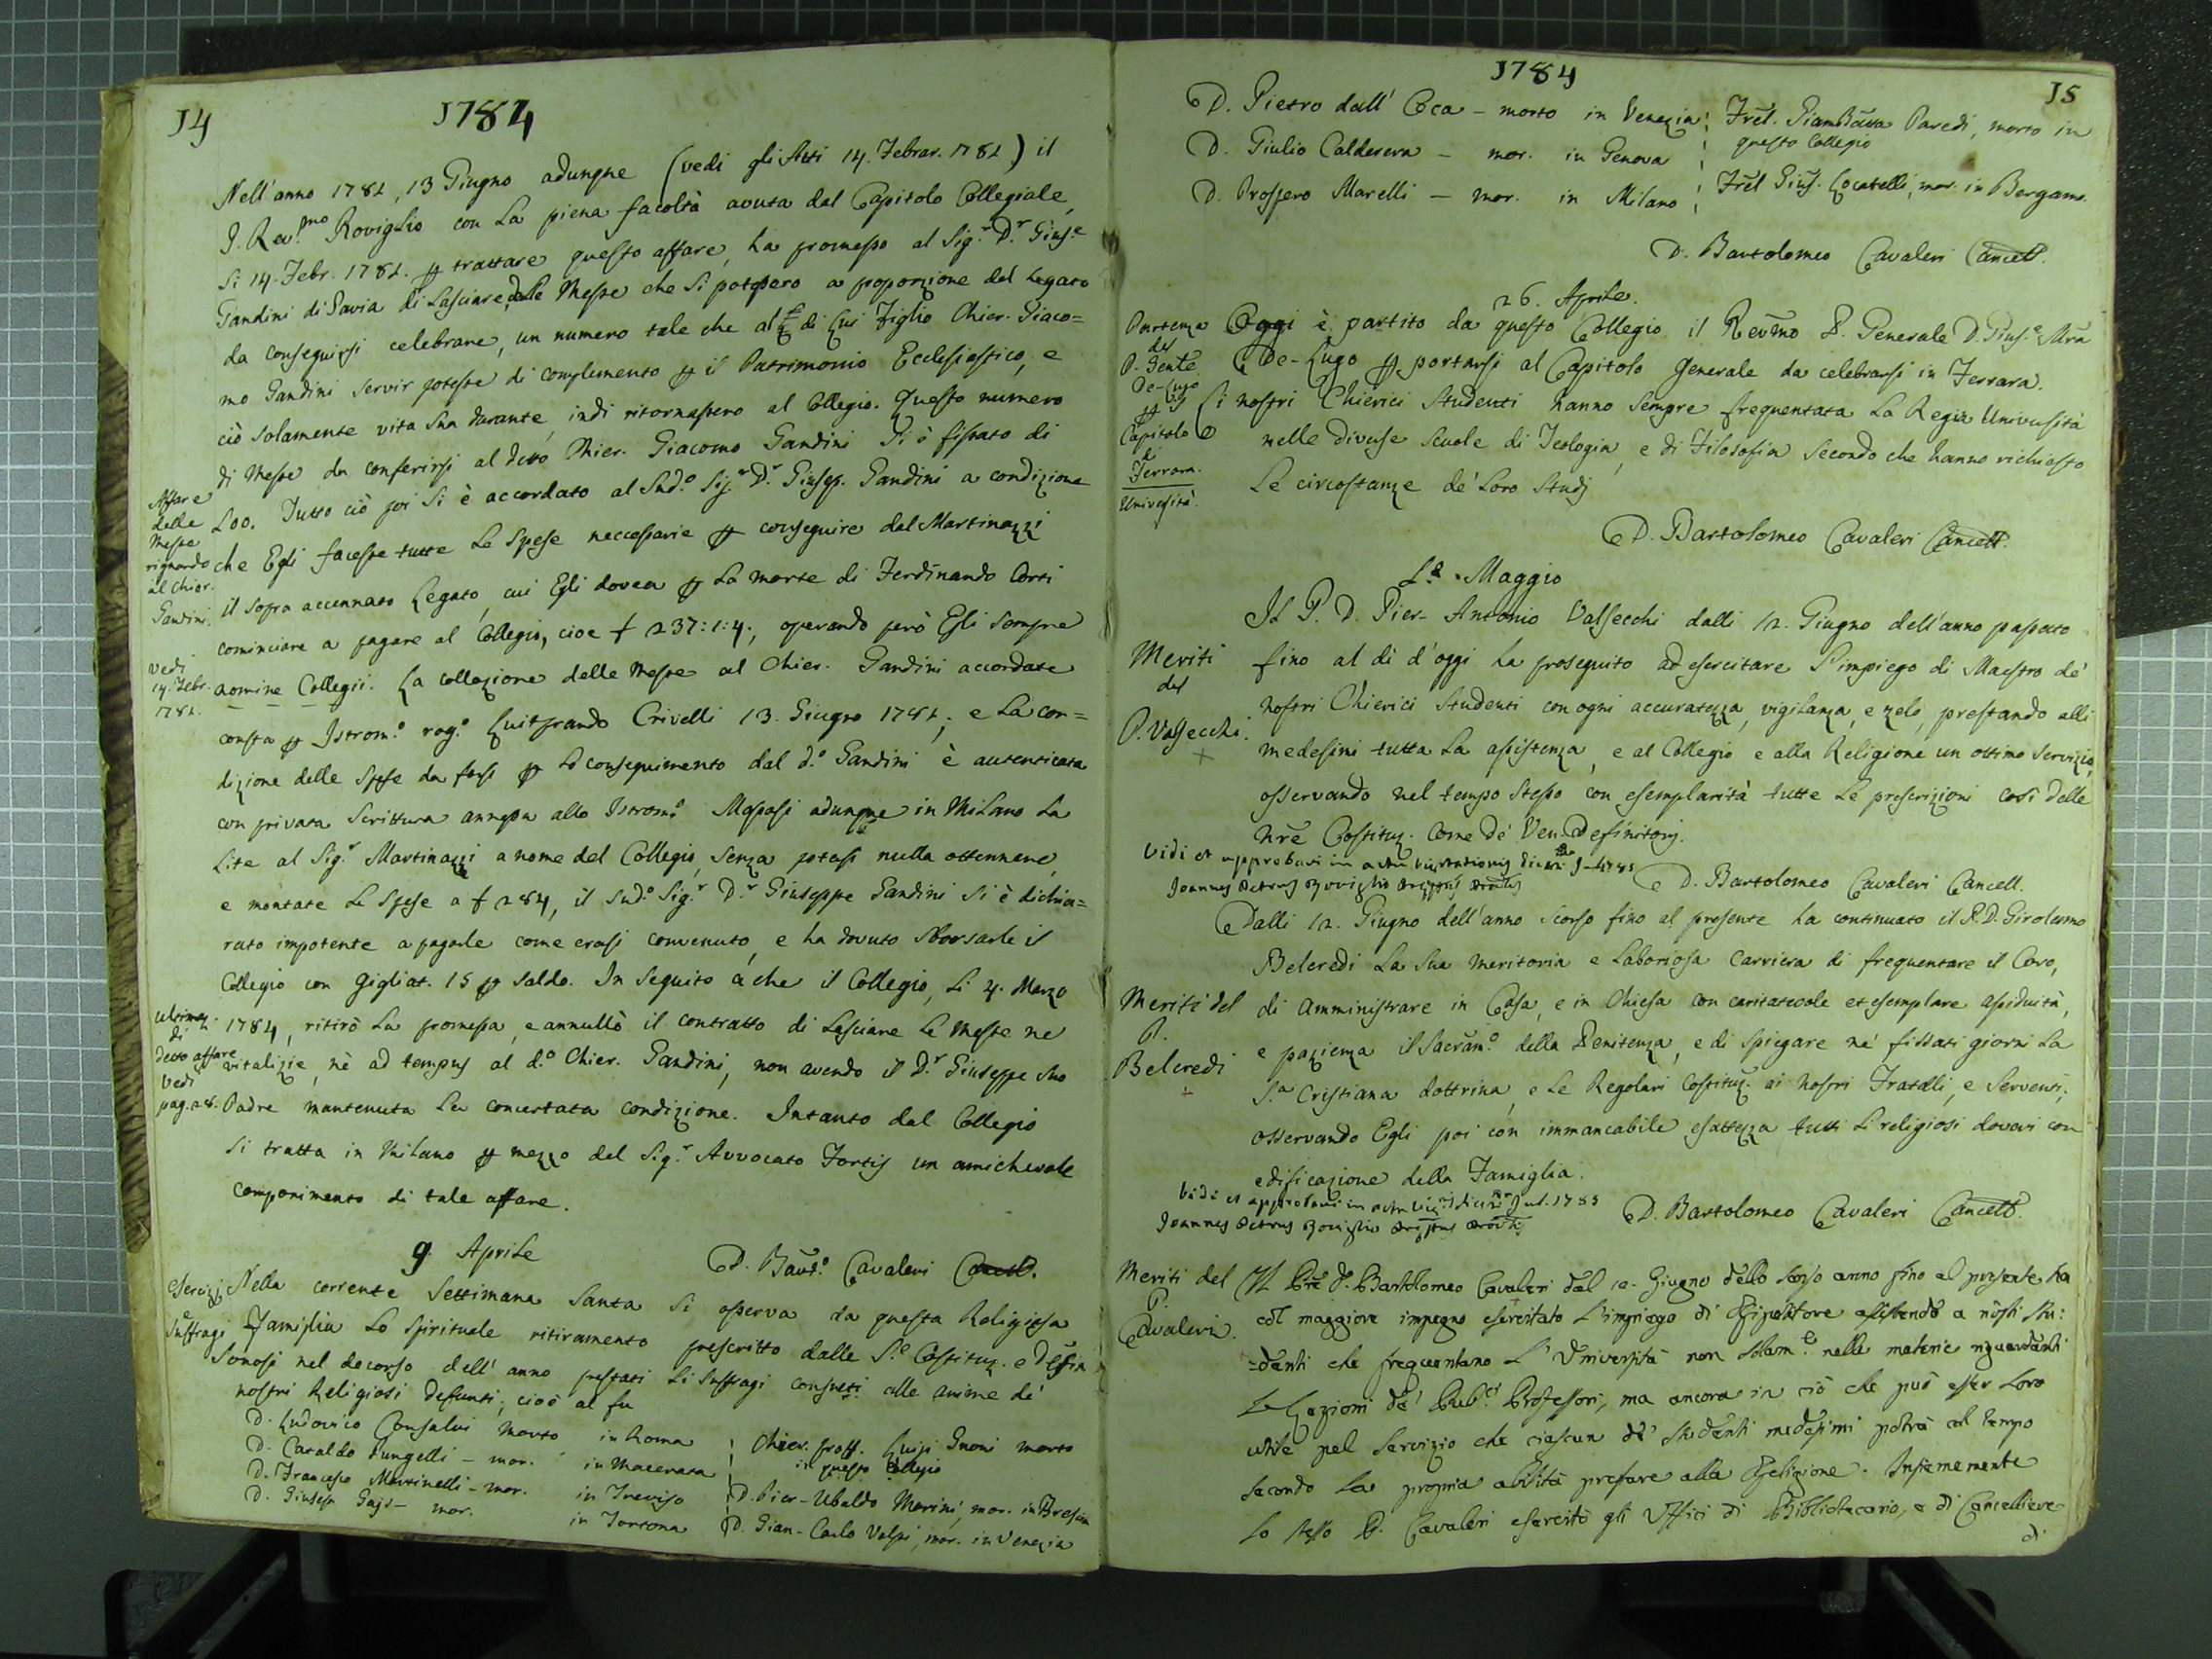 14
1784
Nell'anno 1782, 13 Giugno adunque (vedi gli Atti 14. Febrar. 1782) il
P. Rev.mo Roviglio con la piena facoltà avuta dal Capitolo Collegiale,
li 14. Febr. 1782. per trattare questo affare, ha promesso al Sig.r D.r Gius.e
Gandini di Pavia di lasciare, delle Messe che si potessero a proporzione del Legato
da conseguirsi celebrare, un numero tale che al di lui Figlio Chier. Giaco=
mo Gandini servir potesse di complemento per il Patrimonio Ecclesiastico, e
ciò solamente vita sua durante, indi ritornassero al Collegio. Questo numero
di Messe da conferirsi al detto Chier. Giacomo Gandini si è fissato di
200. Tutto ciò poi si è accordato al Sud.o Sig.r D.r Giusep. Gandini a condizione
che Egli facesse tutte le spese neccessarie per conseguire dal Martinazzi
il sopra accennato Legato, cui Egli dovea per la morte di Ferdinando Corti
cominciare a pagare al Collegio, cioè £ 237:1:4., operando però Egli sempre
nomine Collegii. La collazione delle Messe al Chier. Gandini accordate
consta per Istrom.o rog.o Luitprando Crivelli 13. Giugno 1782; e la con=
dizione delle spese da farsi per lo conseguimento dal d.o Gandini è autenticata
con privata Scrittura annessa allo Istrom.o Mossasi adunque in Milano la
Lite al Sig.r Martinazzi a nome del Collegio, senza potersi nulla ottennere,
e montate le spese a £ 284, il sud.o Sig.r D.r Giuseppe Gandini si è dichia=
rato impotente a pagarle come erasi convenuto, e ha dovuto sborsarle il
Collegio con Gigliat. 15 per saldo. In seguito a che il Collegio, li 4. Marzo
1784, ritirò la promessa, e annullò il contratto di lasciare le Messe nè
vitalizie, nè ad tempus al d.o Chier. Gandini, non avendo il D.r Giuseppe suo
Padre mantenuta la concertata condizione. Intanto dal Collegio
si tratta in Milano per mezzo del Sig.r Avvocato Fortis un amichevole
componimento di tale affare.
Affare
delle
Messe
riguardo
al Chier.
Gandini.
vedi
14. Febr.
1782.
di
detto affare
vedi
pag. 28.
D. Bart.o Cavaleri Cancell.
9. Aprile
Esercizj
Suffragi
Nella corrente Settimana Santa si osserva da questa Religiosa
Famiglia lo spirituale ritiramento prescritto dalle S.e Costituz. e Defin
Sonosi nel decorso dell'anno prestati li suffragi consueti alle anime de'
nostri Religiosi defunti; cioè al fu
D. Ludovico Consalvi morto in Roma
D. Cataldo Fungelli - mor. in Macerata
D. Francesco Martinelli - mor. in Treviso
D. Gius. - mor. in Tortona
Chier. proff. Luigi morto
in questo Collegio
D. Pier-Ubaldo Marini, mor. in Brescia
D. Gian-Carlo Volpi, mor. in Venezia
1784
15
D. Pietro dall'Oca - morto in Venezia
D. Giulio Calderera - mor. in Genova
D. Prospero Marelli - mor. in Milano
Frel. GiamBatta Paredi, morto in
questo Collegio
Frel Gius. Locatelli, mor. in Bergamo.
D. Bartolomeo Cavaleri Cancell.
26. Aprile.
Partenza
del
P. Genle
De-Lugo
per il
Capitolo
di
Ferrara.
Oggi è partito da questo Collegio il Revmo P. Generale D. Gius.e Mra
De-Lugo per portarsi al Capitolo Generale da celebrarsi in Ferrara.
Università.
Li nostri Chierici Studenti hanno sempre frequentata la Regia Università
nelle diverse scuole di Teologia, e di Filosofia secondo che hanno richiesto
le circostanze de' loro studj
D. Bartolomeo Cavaleri Cancell.
2. Maggio
Meriti
del
P. Valsecchi.
Il P. D. Pier-Antonio Valsecchi dalli 12. Giugno dell'anno passato
fino al dì d'oggi ha proseguito ad esercitare l'impiego di Maestro de'
nostri Chierici Studenti con ogni accuratezza, vigilanza, e zelo, prestando alli
medesimi tutta la assistenza, e al Collegio e alla Religione un ottimo servizio,
osservando nel tempo stesso con esemplarità tutte le prescrizioni così delle
nre Costituz. come de' Ven. Definitorj.
Vidi et approbavi in actu visitationis die 1785
Joannes Petrus Roviglio
D. Bartolomeo Cavaleri Cancell.
Meriti del
P.
Belcredi
Dalli 12. Giugno dell'anno scorso fino al presente ha continuato il P. D. Girolamo
Belcredi la sua meritoria e laboriosa carriera di frequentare il Coro,
di amministrare in Casa, e in Chiesa con caritatevole et esemplare assiduità,
e pazienza il Sacram.o della Penitenza, e di spiegare ne' fissati giorni la
S.a Cristiana dottrina, e le Regolari Costituz. ai nostri Fratelli, e Serventi;
osservando Egli poi con immancabile esattezza tutti li religiosi doveri con
edificazione della Famiglia.
Vidi et approbavi in actu 1785
Joannes Petrus Roviglio
D. Bartolomeo Cavaleri Cancell.
Meriti del
P.
Cavaleri.
Il Pre D. Bartolomeo Cavaleri dal 12. Giugno dello scorso anno fino al presente ha
col maggiore impegno esercitato l'impiego di Ripetitore assistendo a nostri Stu:
=denti che frequentano l'Università non solam.e nelle materie riguardanti
le Lezioni de' Pub.ci Professori, ma ancora in ciò che può esser loro
utile pel servizio che ciascun de' studenti medesimi potrà col tempo
secondo la propria abilità prestare alla Religione. Insiememente
lo stesso P. Cavaleri esercitò gli Uffici di Bibliotecario, e di Cancelliere
di